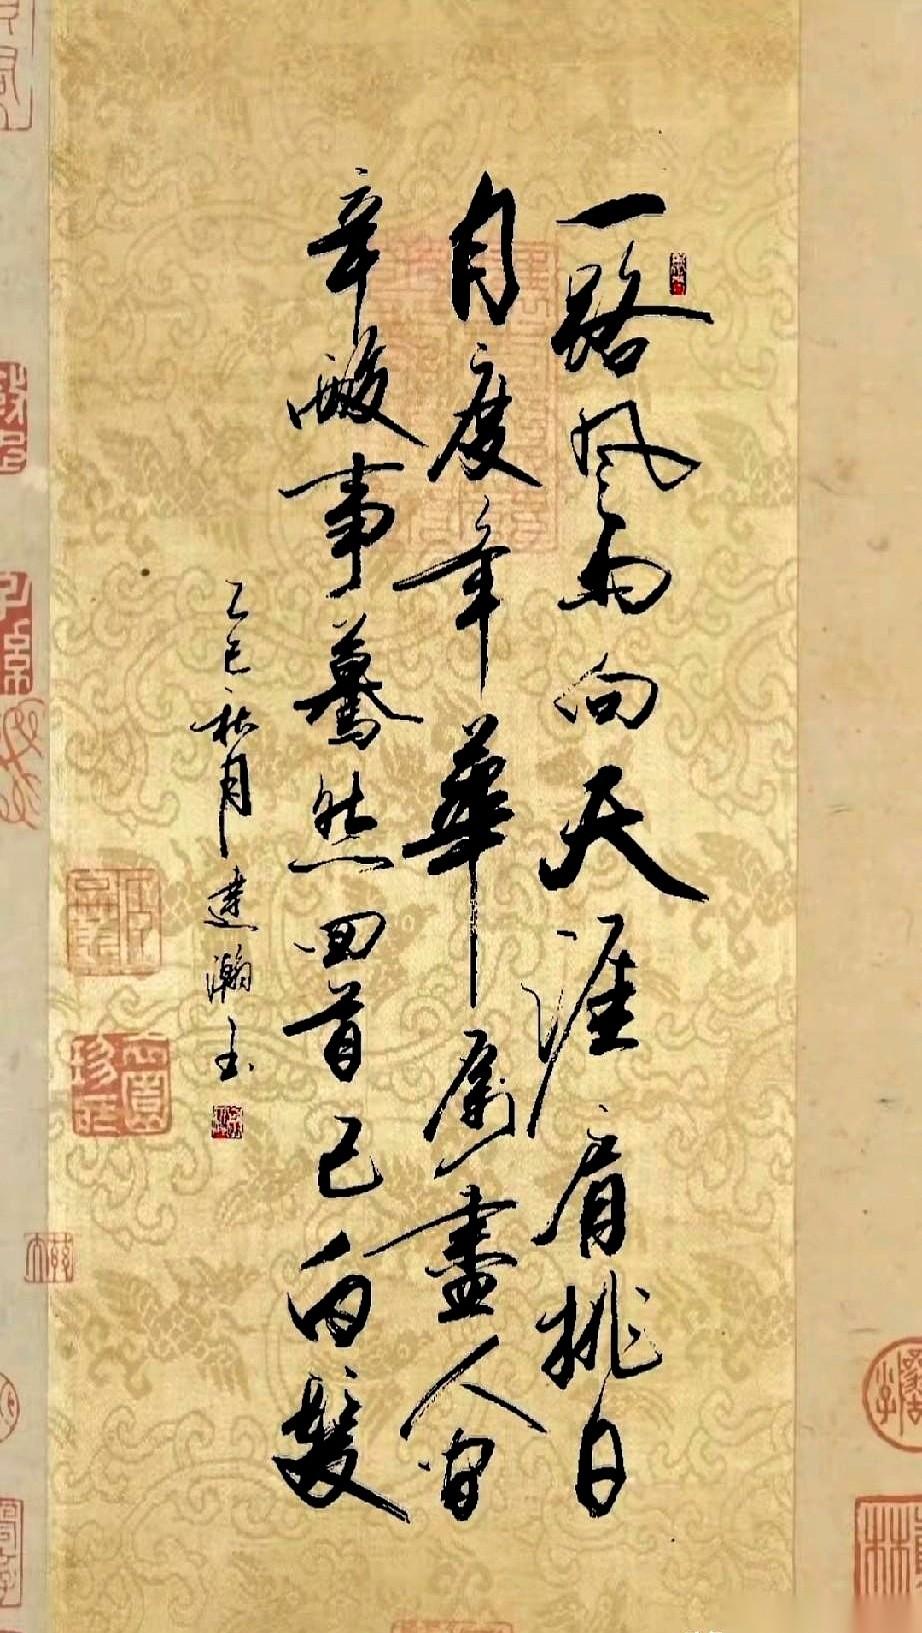 一路风雨向天涯肩挑日
月度年華历盡人间
辛酸事蓦然回首已白髮
乙巳秋月建瀚书